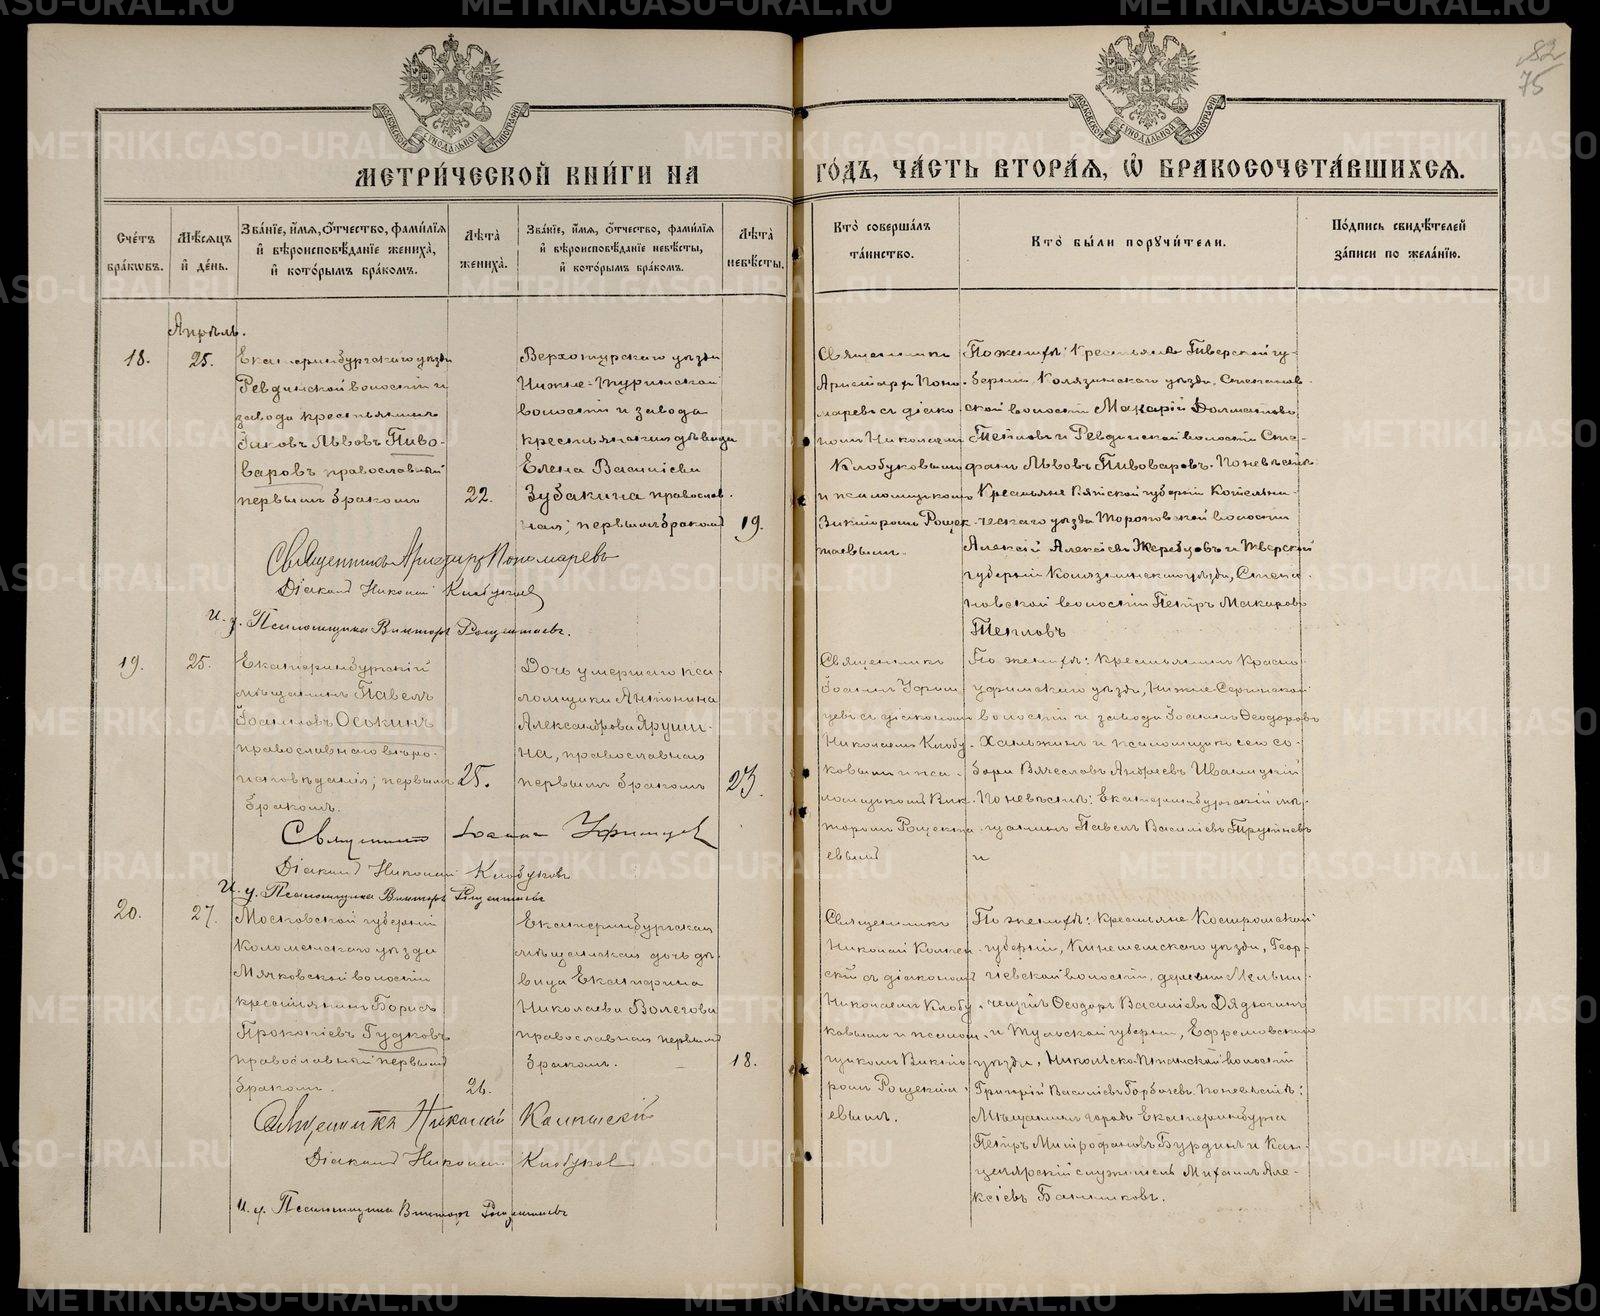 82
75
МОСКОВСКОЙ СѴНОДАЛЬНОЙ ТИПОГРАФІИ
МОСКОВСКОЙ СѴНОДАЛЬНОЙ ТИПОГРАФІИ
МЕТРИ́ЧЕСКОЙ КНИ́ГИ НА ГО́ДЪ, ЧА́СТЬ ВТОРА́Я, Ѽ БРАКОСОЧЕТА́ВШИХСЯ.
Сче́тъ бра́кѡвъ.
Мѣ́сяцъ и҆ де́нь.
Зва́нїе, и҆́мя, ѻ҆́тчество, фами́лїя и҆ вѣроисповѣ́данїе жениха̀, и҆ кото́рымъ бра́комъ.
Лѣ́та̀ жениха̀.
Зва́нїе, и҆́мя, ѻ҆́тчество, фами́лїя и҆ вѣроисповѣ́данїе невѣ́сты, и҆ кото́рымъ бра́комъ.
Лѣ́та̀ невѣ́сты.
Кто̀ соверша́лъ та́инство.
Кто̀ бы́ли поручи́тели.
По́дпись свидѣ́телей за́писи по жела́нїю.
Апрѣль.
18.
25.
Екатеринбургскаго уѣзда
Ревдинской волости и
завода крестьянинъ
Іаковъ Львовъ Пиво-
варовъ православный
первымъ бракомъ
22.
Верхотурскаго уѣзда
Нижне-Туринской
волости и завода
крестьянская дѣвица
Елена Василіева
Зубакина православ-
ная; первымъ бракомъ
19.
Священникъ
Аристархъ Поно-
маревъ съ діако-
номъ Николаемъ
Клобуковымъ
и псаломщикомъ
Викторомъ Рощек-
таевымъ.
По женихѣ: крестьяне Тверской гу-
берніи, Колязинскаго уѣзда, Степанов-
ской волости Макарій Долматовъ
Тепловъ и Ревдинской волости Сте-
фанъ Львовъ Пивоваровъ. По невѣстѣ:
Крестьяне Вятской губерніи Котельни-
ческаго уѣзда Тороповской волости
Алексій Алексіевъ Жеребцовъ и Тверской
губерніи Колязинскаго уѣзда, Степа-
новской волости Петръ Макаровъ
Тепловъ
Священникъ Аристархъ Пономаревъ
Діаконъ Николай Клобуковъ
И. д. Псаломщика Викторъ Рощектаевъ.
19.
25.
Екатеринбургскій
мѣщанинъ Павелъ
Іоанновъ Оськинъ
православнаго вѣро-
исповѣданія; первымъ
бракомъ.
25.
Дочь умершаго пса-
ломщика Антонина
Александрова Яруши-
на, православная
первымъ бракомъ
23.
Священникъ
Іоаннъ Уфим-
цевъ съ діакономъ
Николаемъ Клобу-
ковымъ и пса-
ломщикомъ Вик-
торомъ Рощекта-
евымъ
По женихѣ: крестьянинъ Красно-
уфимскаго уѣзда, Нижне-Сергинской
волости и завода Іоаннъ Ѳеодоровъ
Халь­жинъ и псаломщикъ сего со-
бора Вячеславъ Андреевъ Иваницкій
По невѣстѣ: Екатеринбургскій мѣ-
щанинъ Павелъ Василіевъ Трутневъ
и
Священникъ Іоаннъ Уфимцевъ
Діаконъ Николай Клобуковъ
И. д. Псаломщика Викторъ Рощектаевъ
20.
27.
Московской губерніи
Коломенскаго уѣзда
Мячковской волости
крестьянинъ Борисъ
Прокопіевъ Гудковъ
православный первымъ
бракомъ.
26.
Екатеринбургская
мѣщанская дочь дѣ-
вица Екатерина
Николаева Волегова
православная первымъ
бракомъ.
18.
Священникъ
Николай
съ діакономъ
Николаемъ Клобу-
ковымъ и псалом-
щикомъ Викто-
ромъ Рощекта-
евымъ.
По женихѣ: крестьяне Костромской
губерніи, Кинешемскаго уѣзда, Геор-
гіевской волости, деревни Мельни-
Ѳеодоръ Василіевъ Дядюгинъ
и Тульской губерніи, Ефремовскаго
уѣзда, волости
Григорій Василіевъ Горбачевъ. По невѣстѣ:
Мѣщанинъ города Екатеринбурга
Петръ Митрофановъ Бурдинъ и Кан-
целярскій служитель Михаилъ Але-
ксіевъ Банниковъ.
Священникъ Николай
Діаконъ Николай Клобуковъ
И. д. Псаломщика Викторъ Рощектаевъ
METRIKI.GASO-URAL.RU